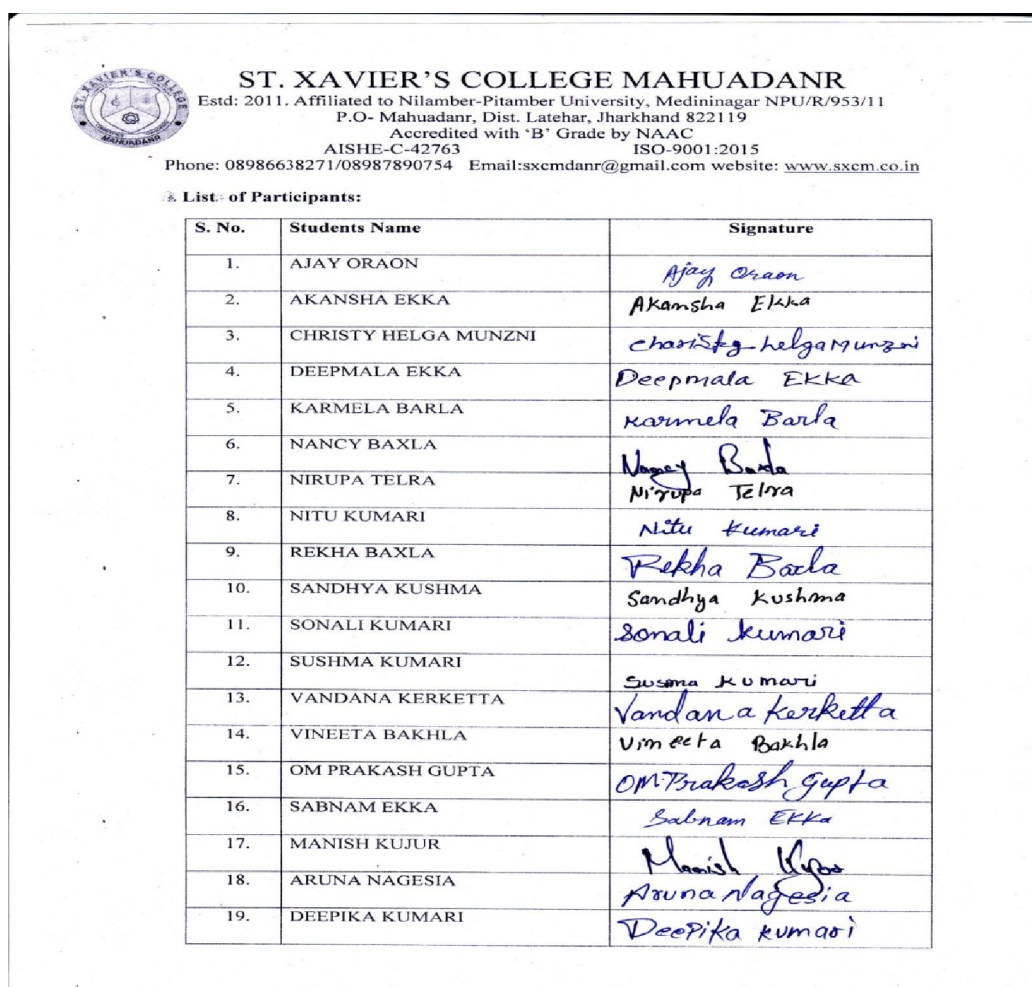 ST. XAVIER'S COLLEGE
MAHUADANR
ST. XAVIER'S COLLEGE MAHUADANR
Estd: 2011. Affiliated to Nilamber-Pitamber University, Medininagar NPU/R/953/11
P.O- Mahuadanr, Dist. Latehar, Jharkhand 822119
Accredited with 'B' Grade by NAAC
AISHE-C-42763 ISO-9001:2015
Phone: 08986638271/08987890754 Email:sxcmdanr@gmail.com website: www.sxcm.co.in
List of Participants:
S. No. Students Name Signature
1. AJAY ORAON Ajay Oraon
2. AKANSHA EKKA Akansha Ekka
3. CHRISTY HELGA MUNZNI charisty helga Munzni
4. DEEPMALA EKKA Deepmala EKKA
5. KARMELA BARLA Karmela Barla
6. NANCY BAXLA Nancy Baxla
7. NIRUPA TELRA Nirupa Telra
8. NITU KUMARI Nitu Kumari
9. REKHA BAXLA Rekha Baxla
10. SANDHYA KUSHMA Sandhya Kushma
11. SONALI KUMARI Sonali kumari
12. SUSHMA KUMARI Susma Kumari
13. VANDANA KERKETTA Vandana Kerketta
14. VINEETA BAKHLA Vineeta Bakhla
15. OM PRAKASH GUPTA OM Prakash Gupta
16. SABNAM EKKA Sabnam EKKa
17. MANISH KUJUR Manish Kujur
18. ARUNA NAGESIA Aruna Nagesia
19. DEEPIKA KUMARI DeePika kumari